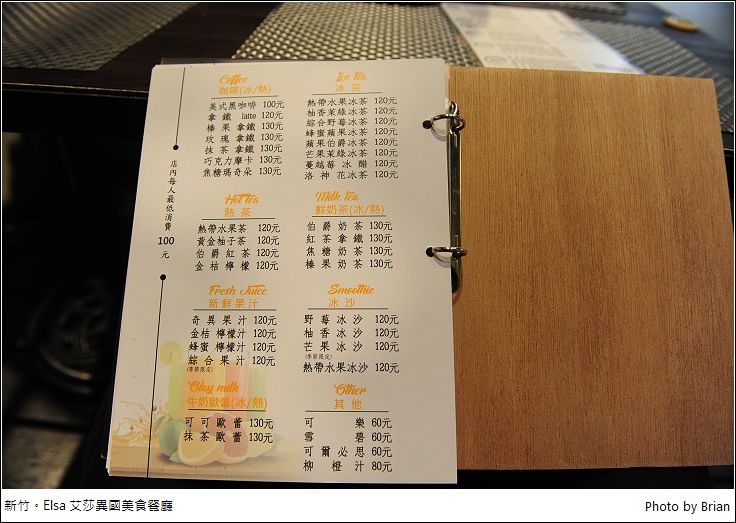 Coffee
咖啡(冰/熱)
美式黑咖啡 100元
拿鐵 latte 120元
榛果拿鐵 130元
玫瑰拿鐵 130元
抹茶拿鐵 130元
巧克力摩卡 130元
焦糖瑪奇朵 130元
Ice tea
冰茶
熱帶水果冰茶 120元
柚香茉綠冰茶 120元
綜合野莓冰茶 120元
蜂蜜蘋果冰茶 120元
蘋果伯爵冰茶 120元
芒果茉綠冰茶 120元
蔓越莓冰醋 120元
洛神花冰茶 120元
店內每人最低消費
100
元
Hot Tea
熱茶
熱帶水果茶 120元
黃金柚子茶 120元
伯爵紅茶 120元
金桔檸檬 120元
Milk tea
鮮奶茶(冰/熱)
伯爵奶茶 130元
紅茶拿鐵 130元
焦糖奶茶 130元
榛果奶茶 130元
Fresh Juice
新鮮果汁
奇異果汁 120元
金桔檸檬汁 120元
蜂蜜檸檬汁 120元
綜合果汁 120元
(季節限定)
Smoothie
冰沙
野莓冰沙 120元
柚香冰沙 120元
芒果冰沙 120元
(季節限定)
熱帶水果冰沙 120元
Olay milk
牛奶歐蕾(冰/熱)
可可歐蕾 130元
抹茶歐蕾 130元
Other
其他
可樂 60元
雪碧 60元
可爾必思 60元
柳橙汁 80元
新竹。Elsa 艾莎異國美食餐廳
Photo by Brian